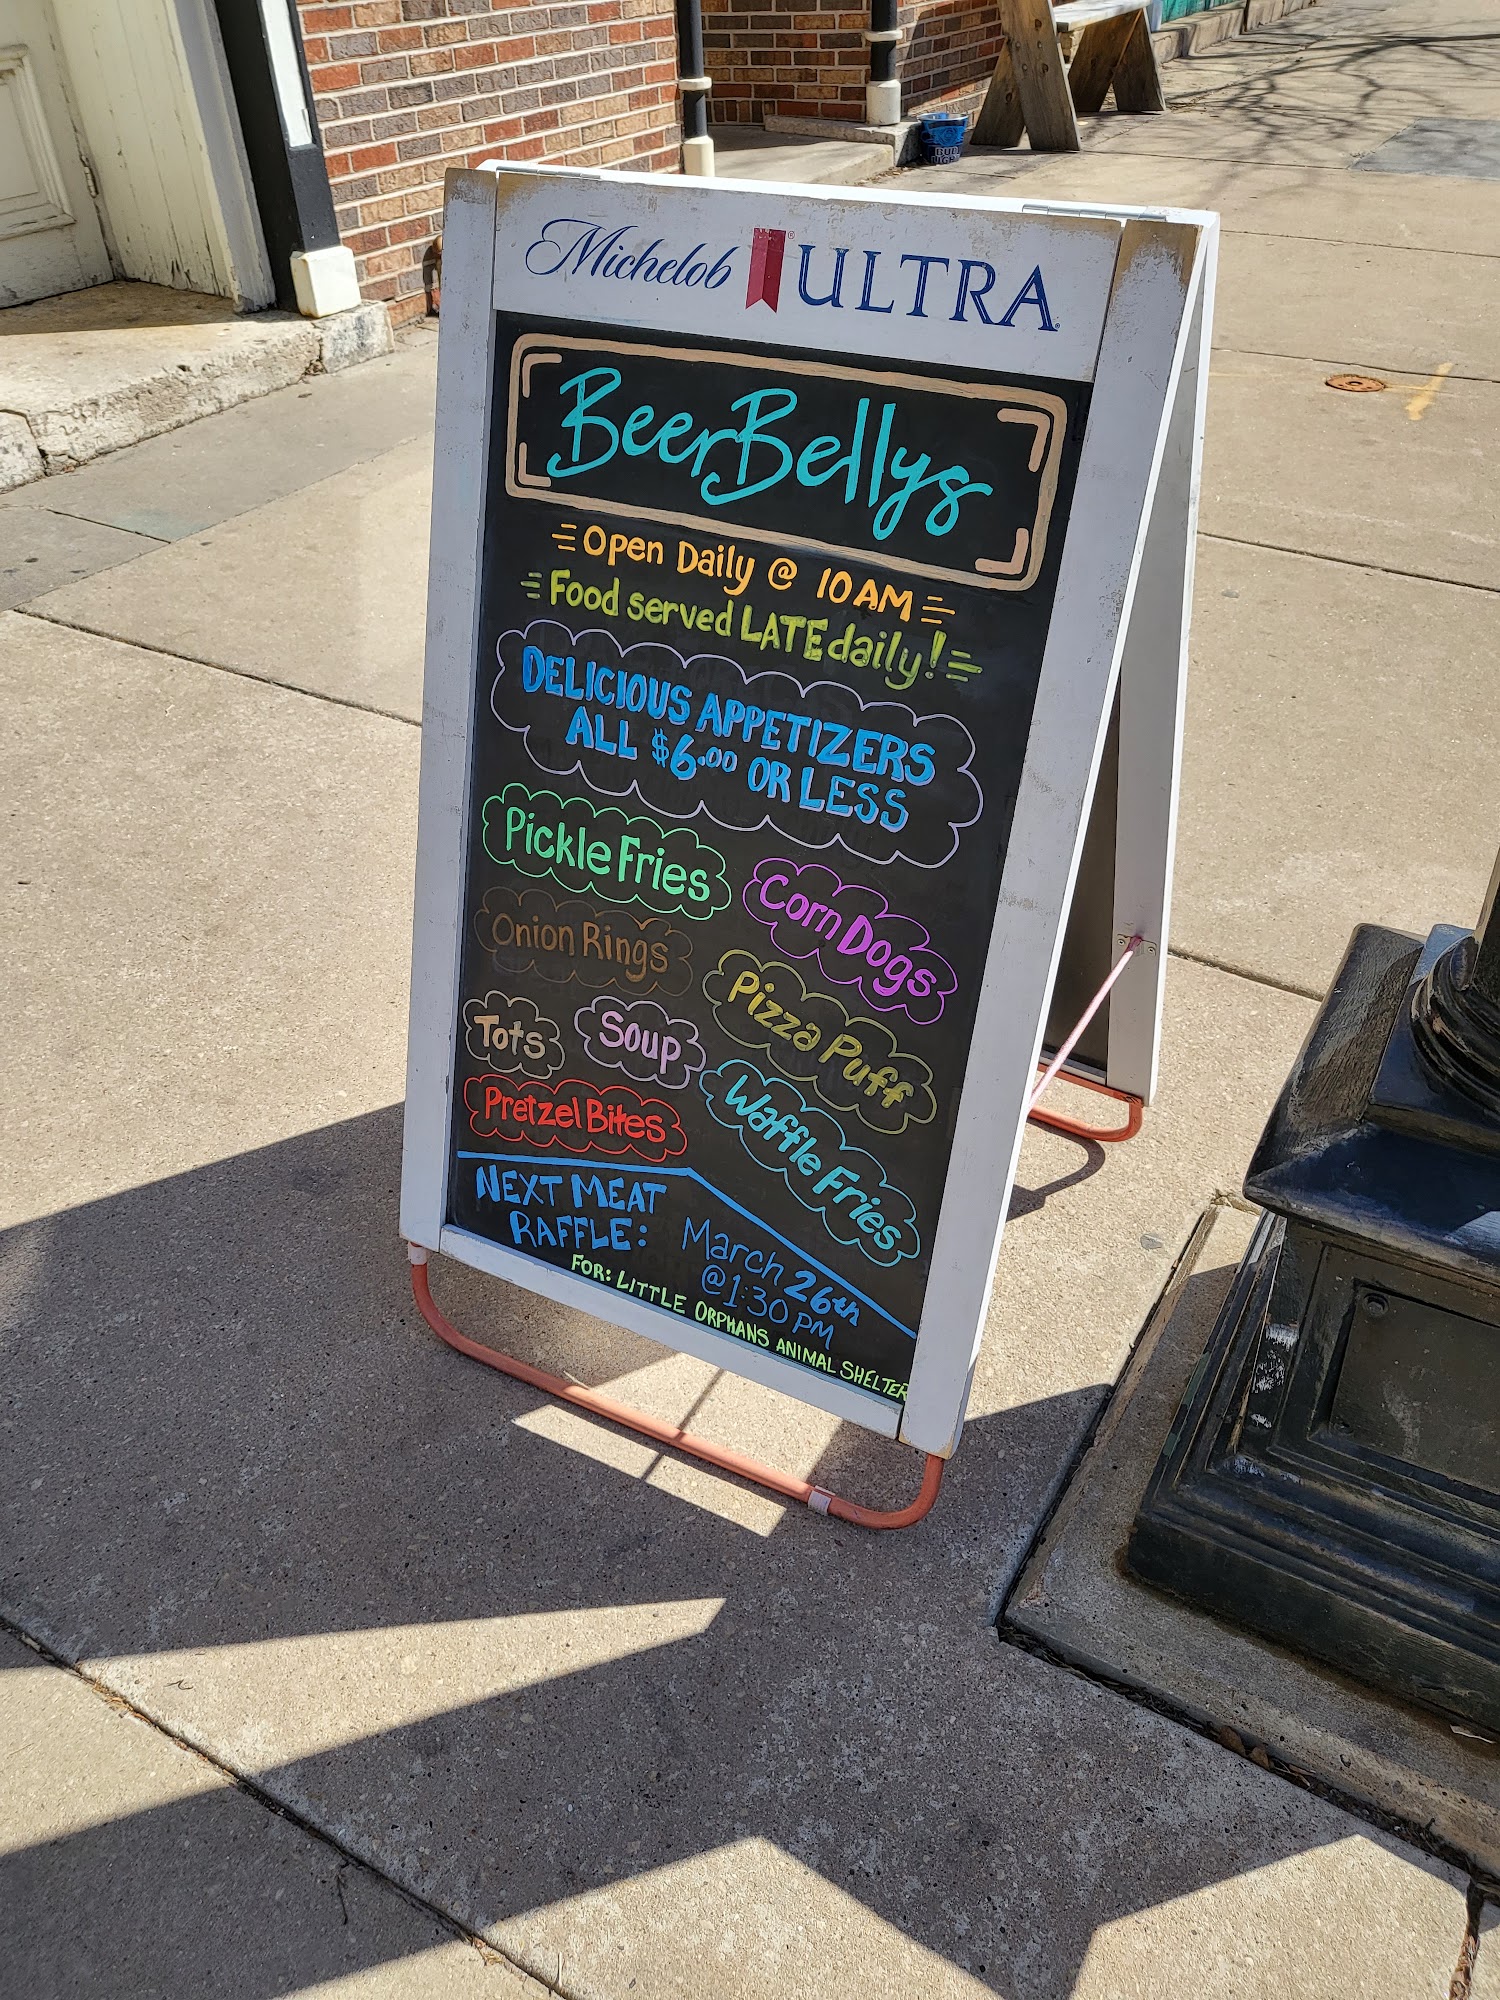 Michelob ULTRA
BeerBellys
Open Daily @ 10AM
Food served LATE daily!
DELICIOUS APPETIZERS
ALL $6.00 OR LESS
Pickle Fries
Corn Dogs
Onion Rings
Pizza Puff
Tots
Soup
Waffle Fries
Pretzel Bites
NEXT MEAT
RAFFLE:
March 26th
@1:30 PM
FOR: LITTLE ORPHANS ANIMAL SHELTER
BUD
LIGHT